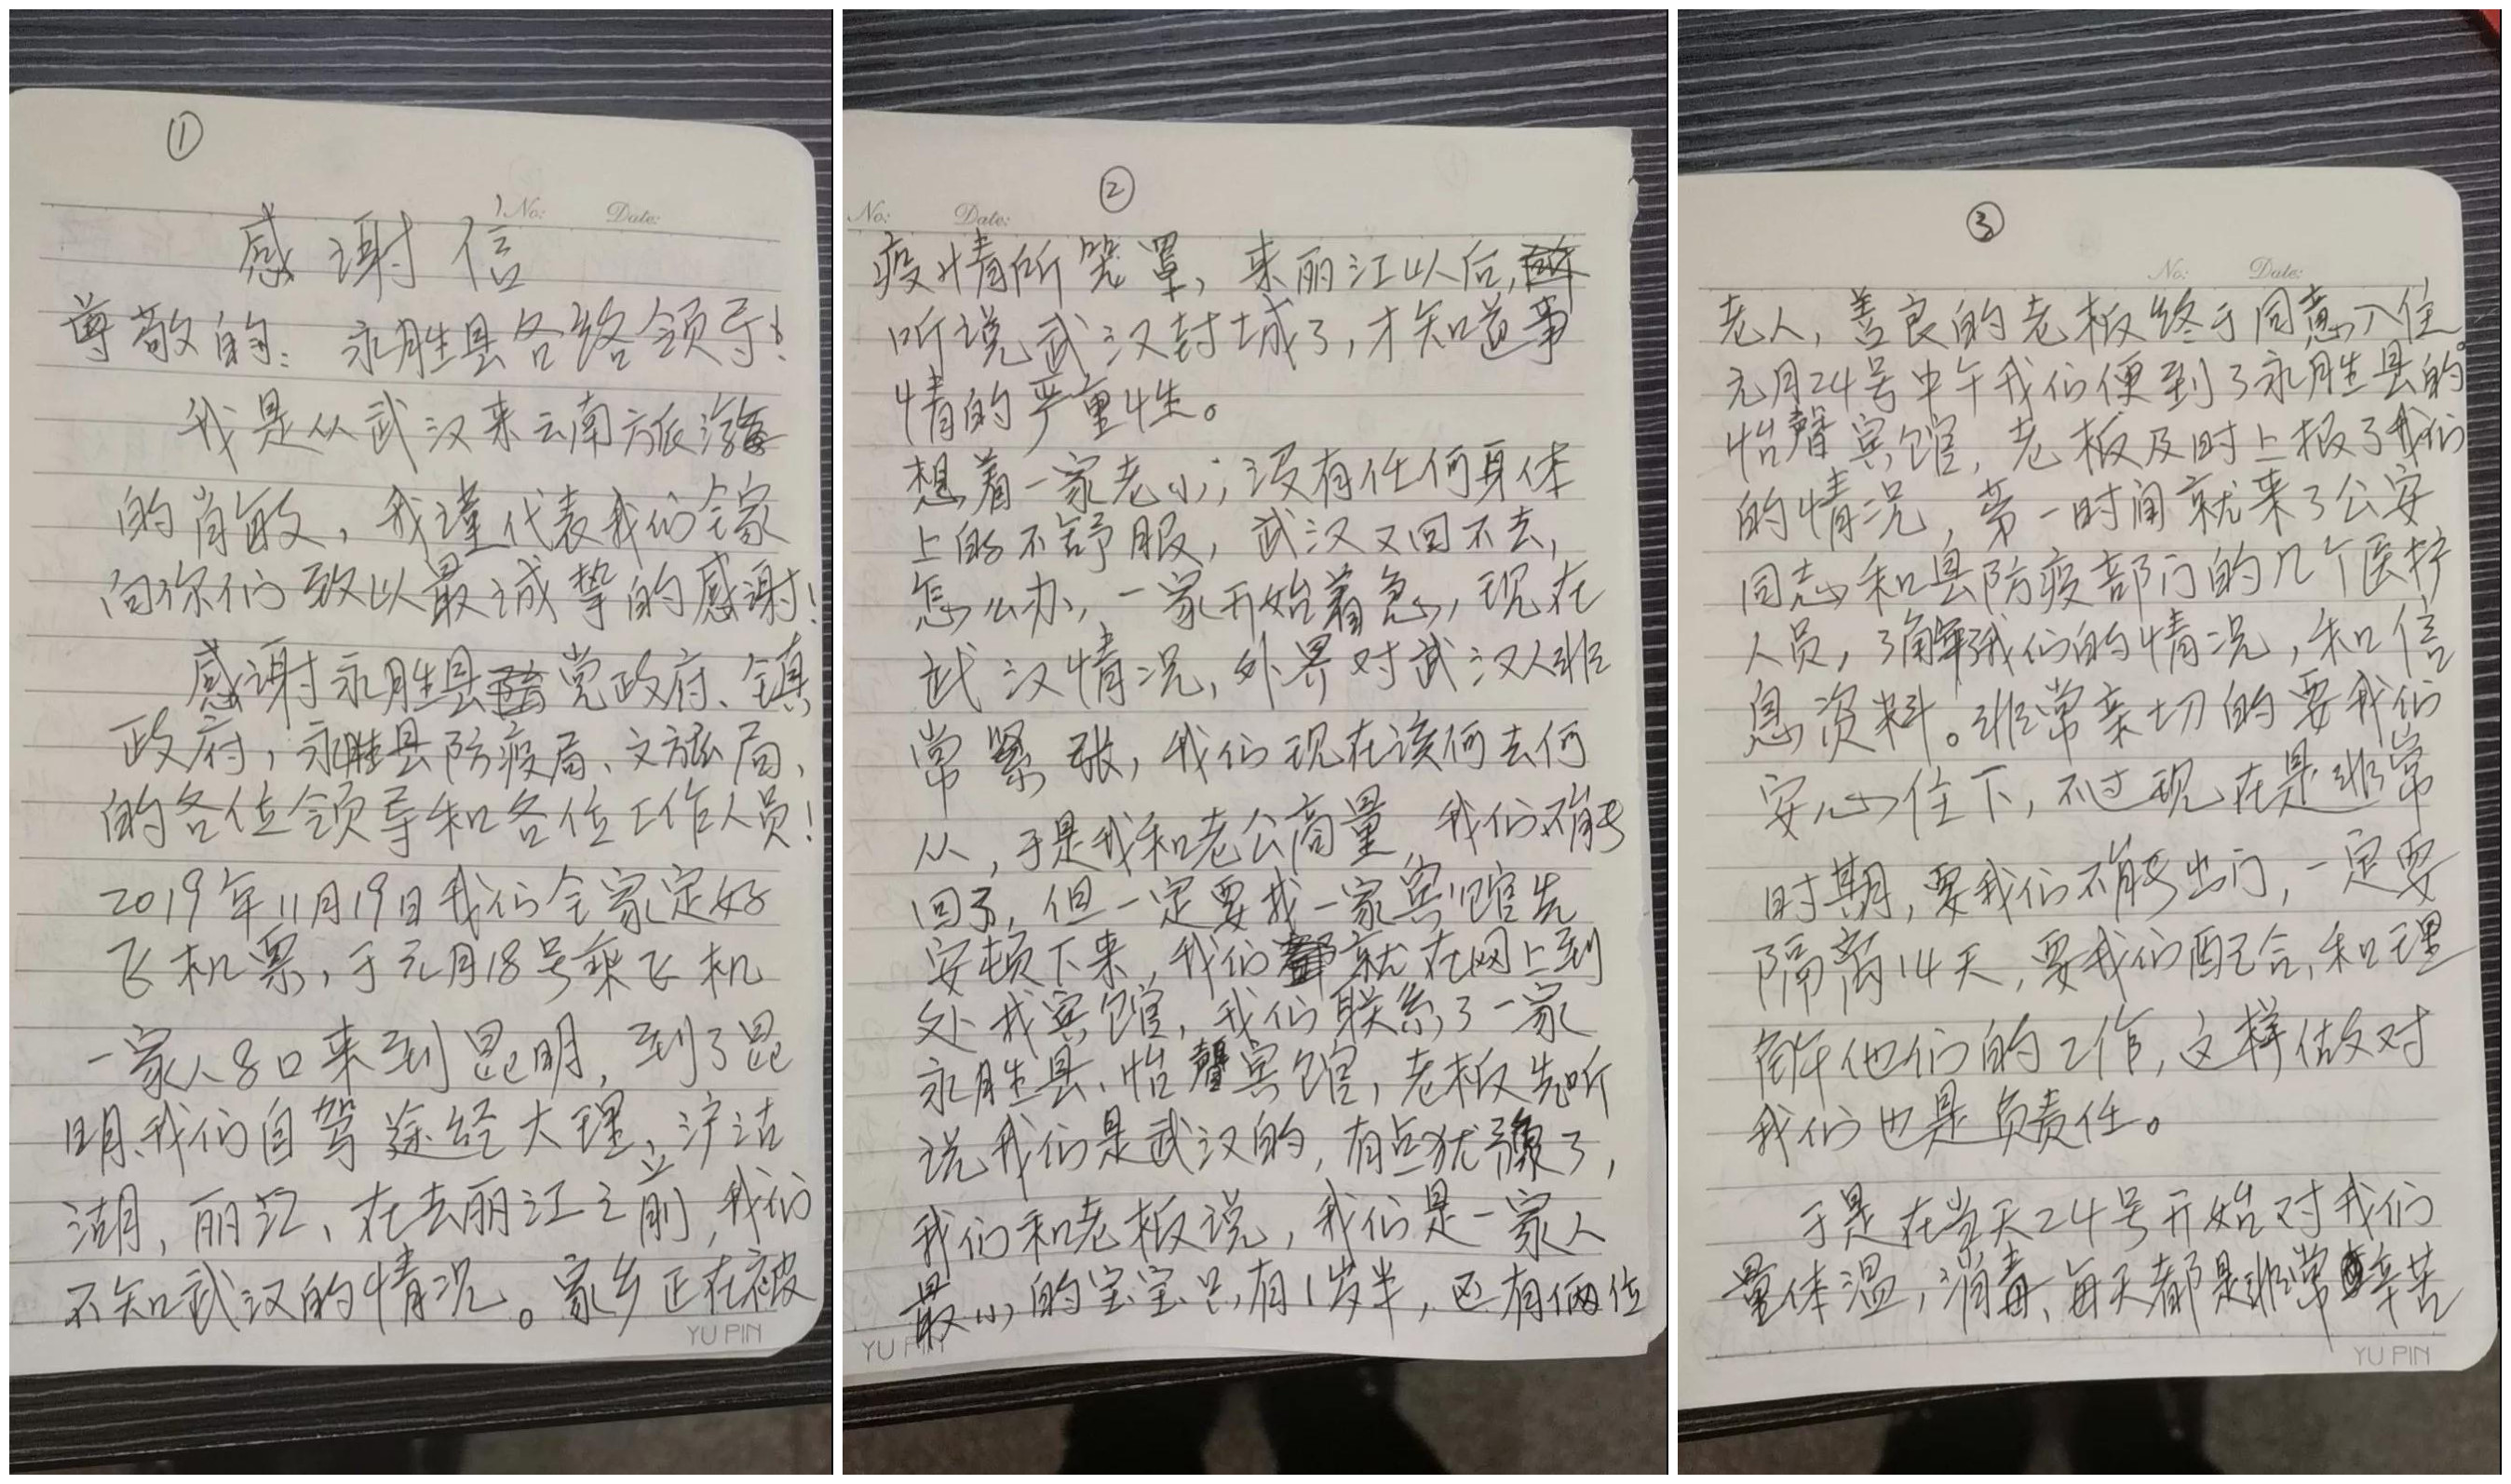 ①
No: Date:
感谢信
尊敬的: 永胜县各络领导!
我是从武汉来云南旅游
的肖敏，我谨代表我们全家
向你们致以最诚挚的感谢!
感谢永胜县党政府、镇
政府，永胜县防疫局、文旅局、
的各位领导和各位工作人员!
2019年11月19日我们全家定好
飞机票，于元月18号乘飞机
一家人8口来到昆明，到了昆
明、我们自驾途经大理、泸沽
湖，丽江、在去丽江之前，我们
不知武汉的情况。家乡正在被
YU PIN
②
No: Date:
疫情所笼罩，来丽江以后，
听说武汉封城了，才知道事
情的严重性。
想着一家老小，没有任何身体
上的不舒服，武汉又回不去，
怎么办，一家开始着急，现在
武汉情况，外界对武汉人非
常紧张，我们现在该何去何
从，于是我和老公商量，我们不能
回了，但一定要找一家宾馆先
安顿下来，我们就在网上到
处找宾馆，我们联系了一家
永胜县、怡馨宾馆，老板先听
说我们是武汉的，有点犹豫了，
我们和老板说，我们是一家人
最小的宝宝只有1岁半，还有俩位
YU PIN
③
No: Date:
老人，善良的老板终于同意入住。
元月24号中午我们便到了永胜县的
怡馨宾馆，老板及时上报了我们
的情况，第一时间就来了公安
同志和县防疫部门的几个医护
人员，了解我们的情况，和信
息资料。非常亲切的要我们
安心住下，不过现在是非常
时期，要我们不能出门，一定要
隔离14天，要我们配合，和理
解他们的工作，这样做对
我们也是负责任。
于是在当天24号开始对我们
量体温，消毒、每天都是非常辛苦
YU PIN